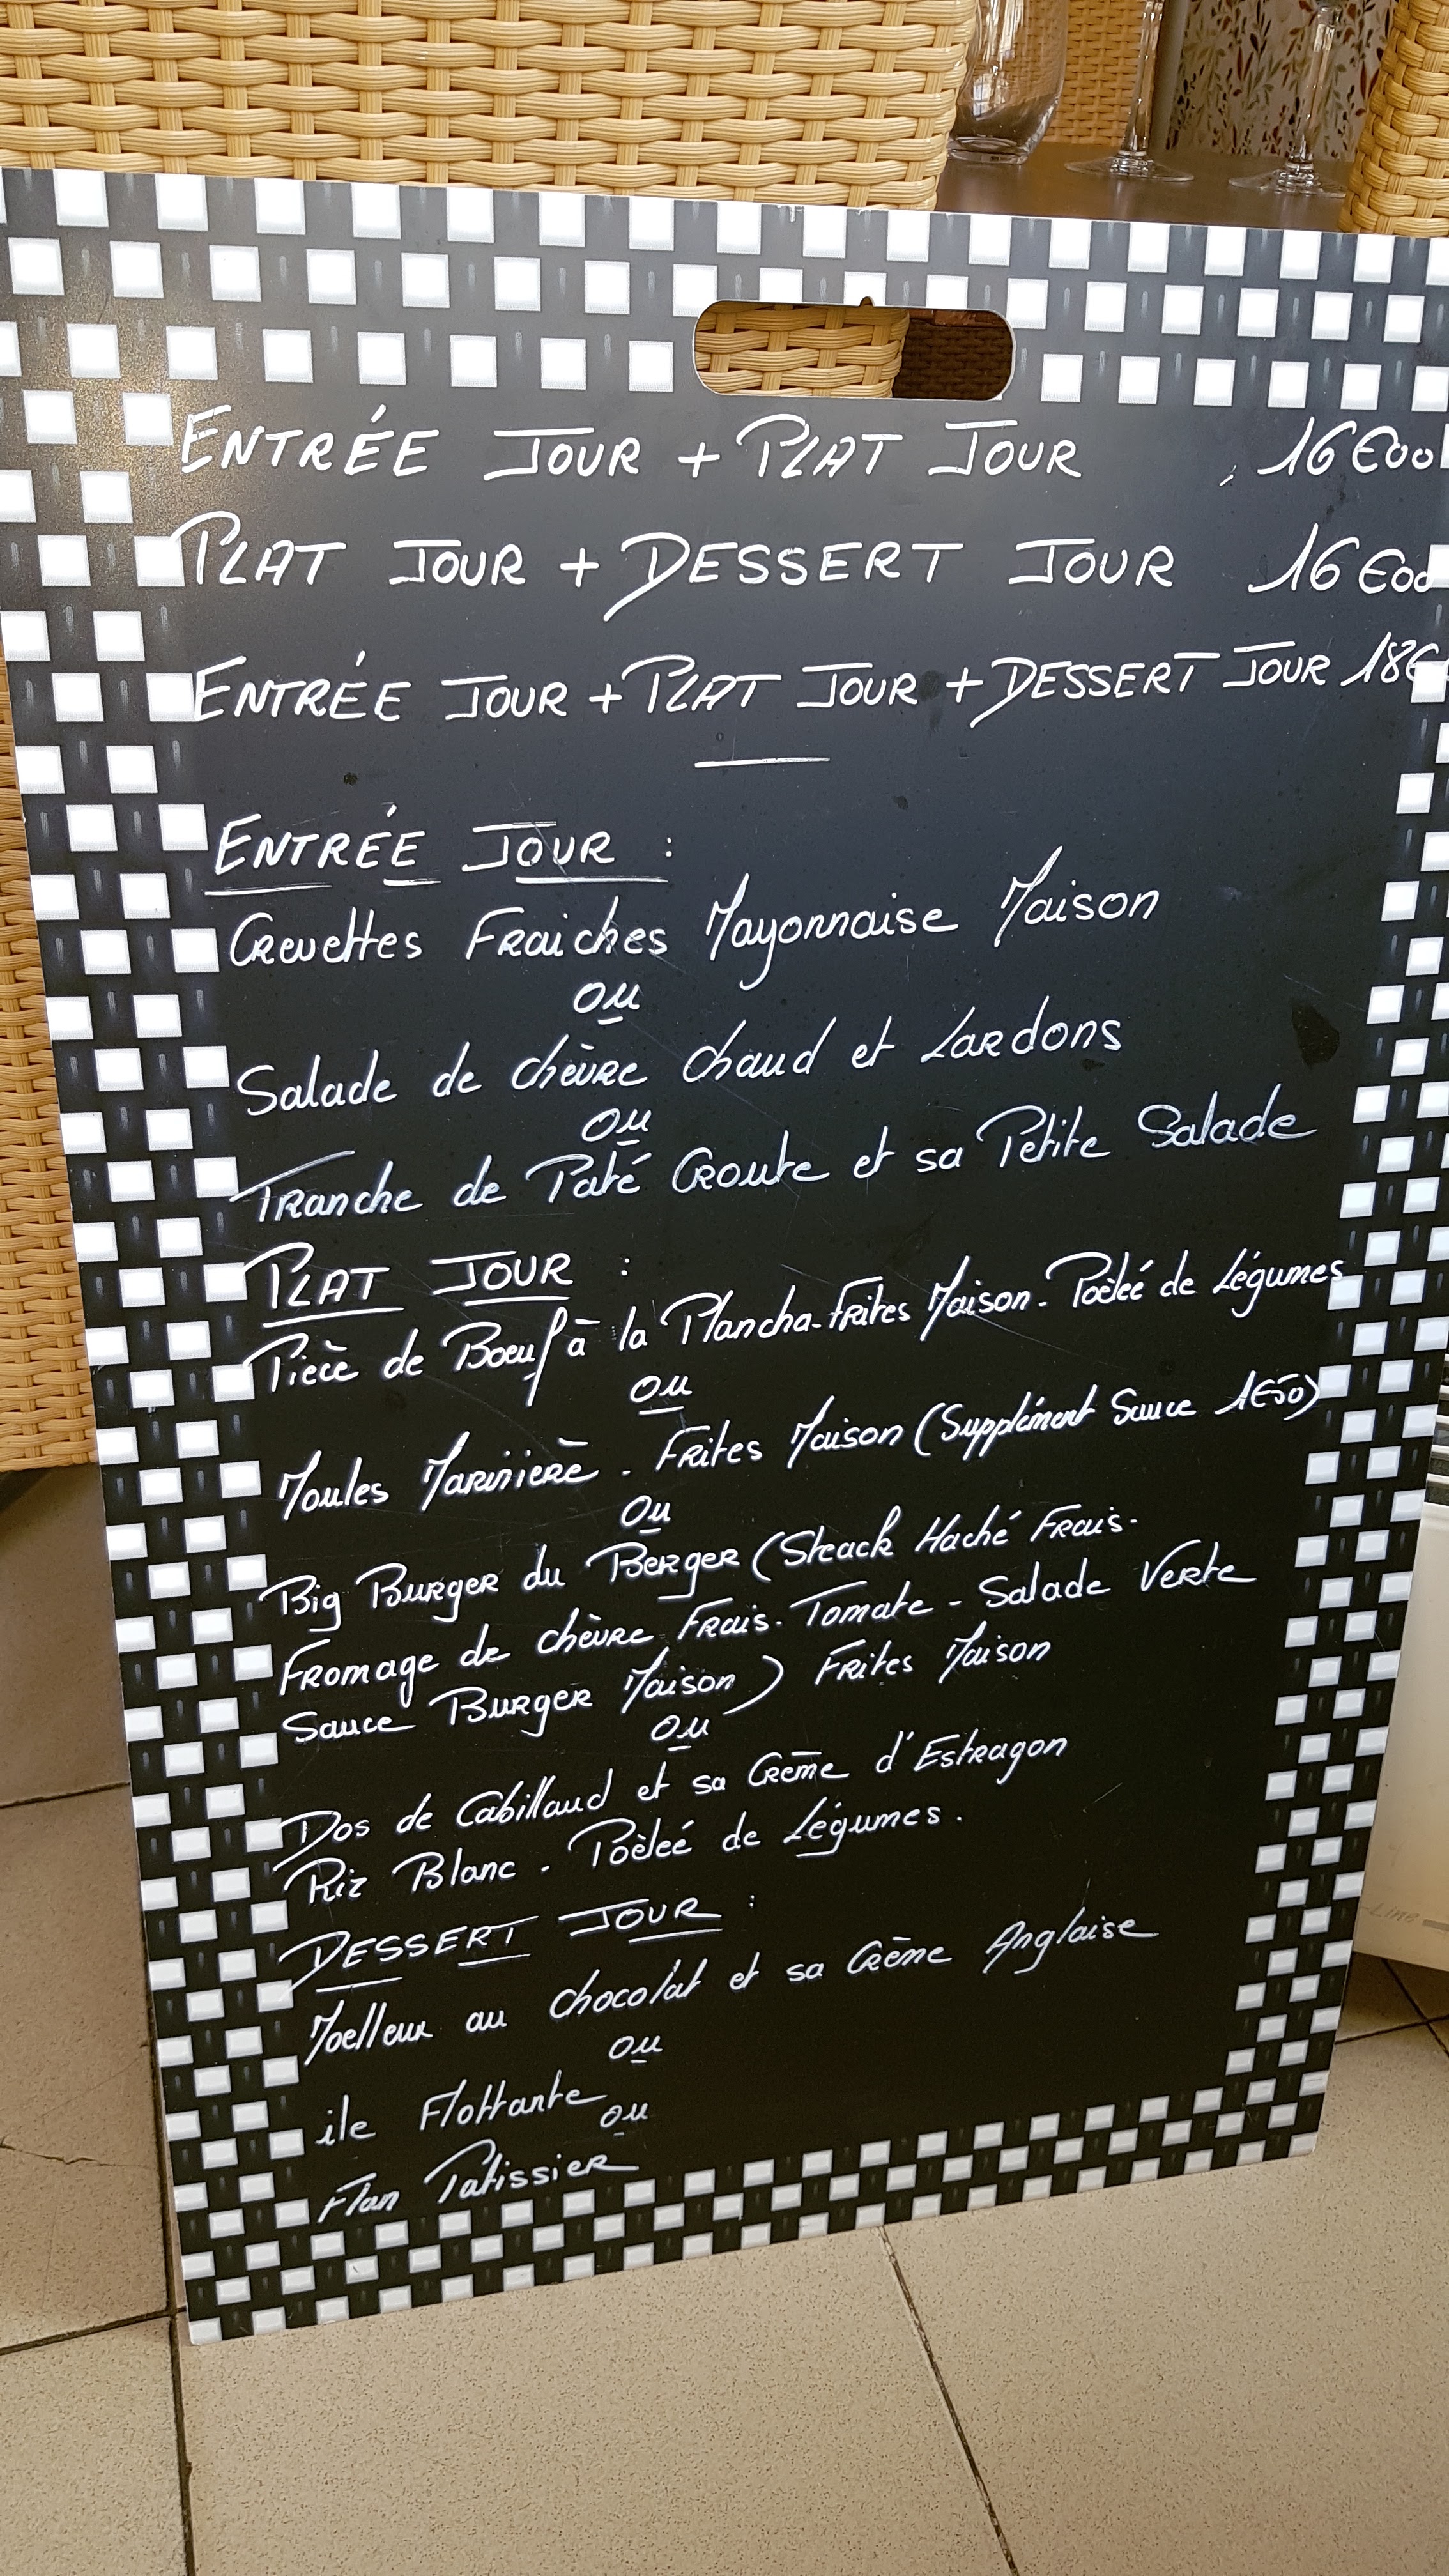 ENTRÉE JOUR + PLAT JOUR 16€00
PLAT JOUR + DESSERT JOUR 16€00
ENTRÉE JOUR + PLAT JOUR + DESSERT JOUR 18€
ENTRÉE JOUR :
Crevettes Fraiches Mayonnaise Maison
ou
Salade de chèvre chaud et Lardons
ou
Tranche de Paté Croute et sa Petite Salade
PLAT JOUR :
Pièce de Boeuf à la Plancha-Frites Maison-Poèleé de Légumes
ou
Moules Marinière - Frites Maison (Supplément Sauce 1€50)
ou
Big Burger du Berger (Steack Haché Frais-
Fromage de chèvre Frais-Tomate-Salade Verte
Sauce Burger Maison) Frites Maison
ou
Dos de Cabillaud et sa Crème d'Estragon
Riz Blanc - Poèleé de Légumes.
DESSERT JOUR :
Moelleux au chocolat et sa Crème Anglaise
ou
ile Flottante
ou
Flan Patissier